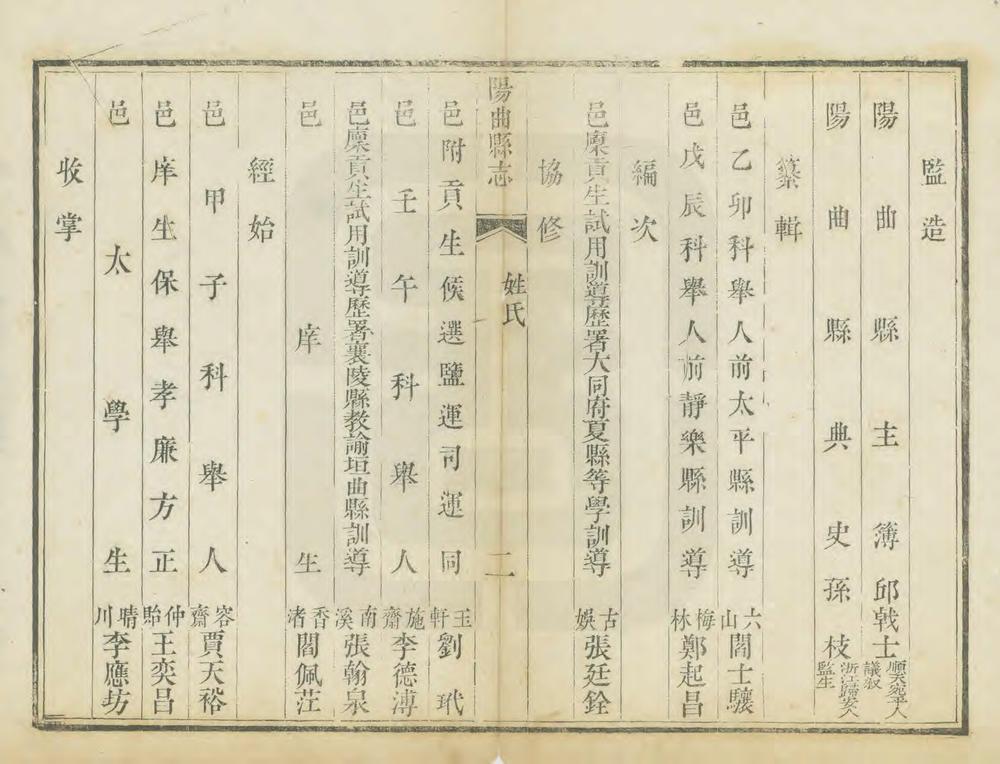 監造
陽曲縣主簿邱戟士順天宛平人議敘
陽曲縣典史孫枝浙江歸安人監生
纂輯
邑乙卯科舉人前太平縣訓導六山閻士驤
邑戊辰科舉人前靜樂縣訓導梅林鄭起昌
編次
邑廩貢生試用訓導歷署大同府夏縣等學訓導古娛張廷銓
協修
陽曲縣志 姓氏 二
邑附貢生候選鹽運司運同玉軒劉玳
邑壬午科舉人施齋李德溥
邑廩貢生試用訓導歷署襄陵縣教諭垣曲縣訓導南溪張翰泉
邑庠生香渚閻佩茳
經始
邑甲子科舉人容齋賈天裕
邑庠生保舉孝廉方正仲貽王奕昌
邑太學生晴川李應坊
收掌